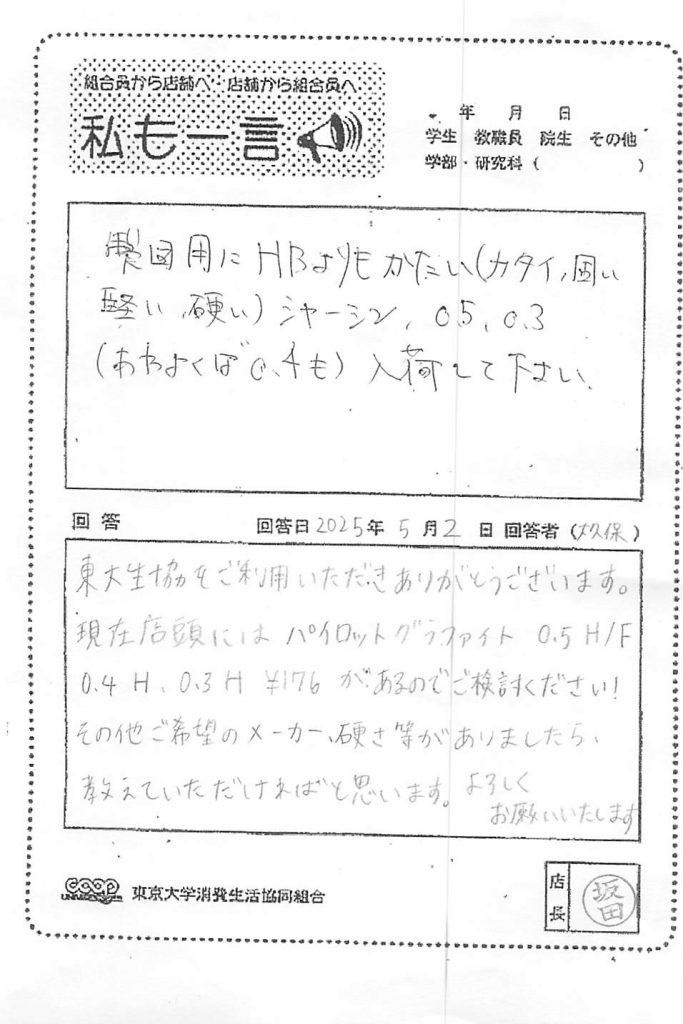 組合員から店舗へ・店舗から組合員へ
私も一言
年 月 日
学生 教職員 院生 その他
学部・研究科 ( )
製図用にHBよりもかたい(カタイ、固い
堅い、硬い)シャーシン、0.5、0.3
(あわよくば0.4も)入荷して下さい、
回答 回答日2025年5月2日 回答者(久保)
東大生協をご利用いただきありがとうございます。
現在店頭には パイロットグラファイト 0.5 H/F
0.4 H、0.3 H ¥176 があるのでご検討ください!
その他ご希望のメーカー、硬さ等がありましたら、
教えていただければと思います。よろしく
お願いいたします
coop 東京大学消費生活協同組合
店長 坂田